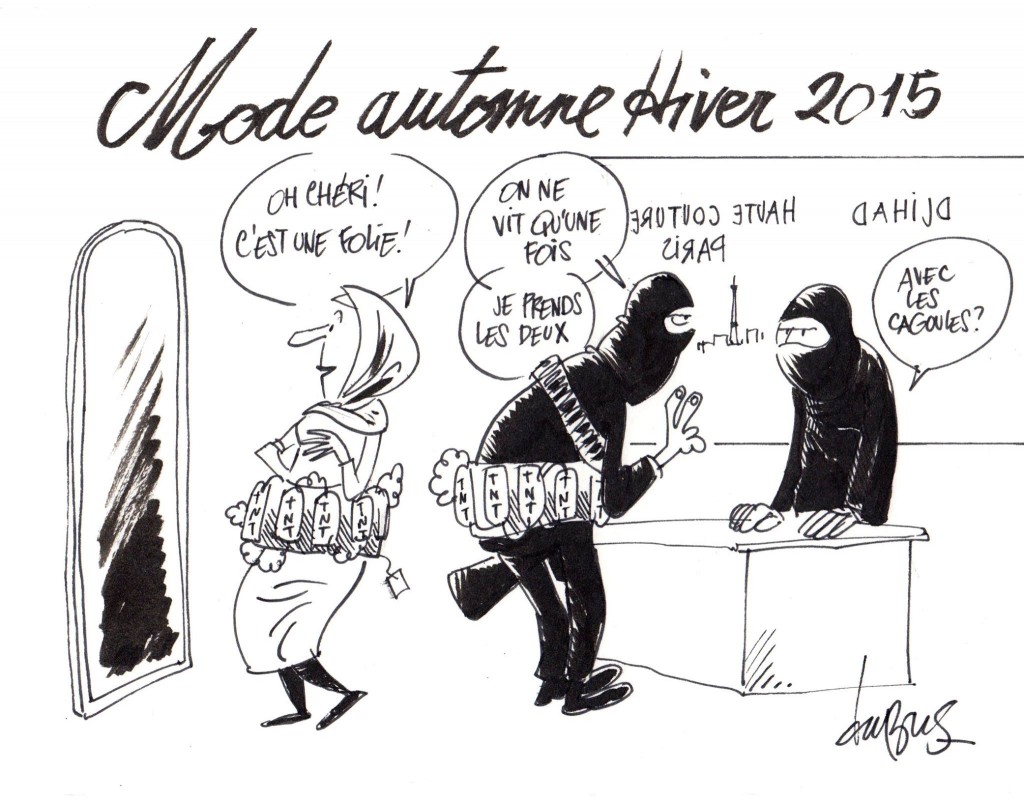 Mode automne Hiver 2015
OH CHÉRI!
C'EST UNE FOLIE!
ON NE
VIT QU'UNE
FOIS
JE PRENDS
LES DEUX
HAUTE COUTURE
PARIS
DJIHAD
AVEC
LES
CAGOULES?
TNT
TNT
TNT
TNT
TNT
TNT
TNT
TNT
TNT
dubus